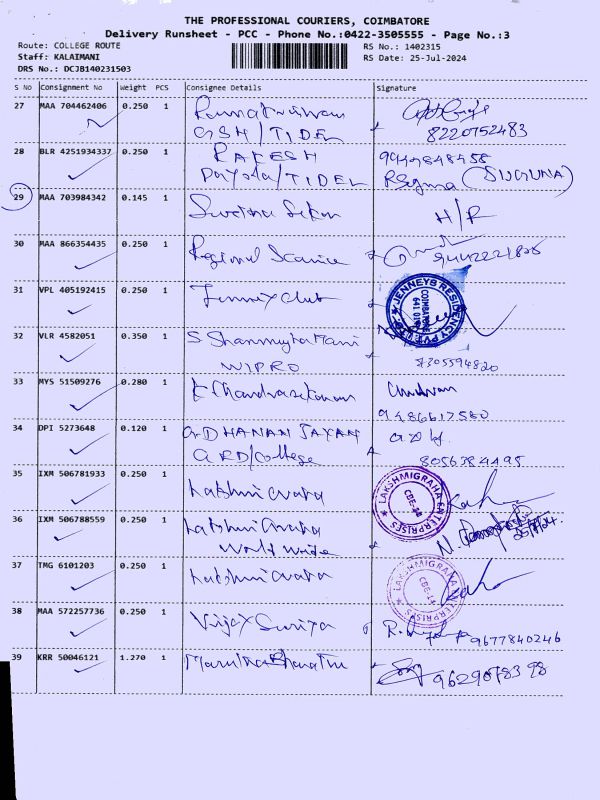 THE PROFESSIONAL COURIERS, COIMBATORE
Delivery Runsheet - PCC - Phone No.:0422-3505555 - Page No.:3
Route: COLLEGE ROUTE RS No.: 1402315
Staff: KALAIMANI RS Date: 25-Jul-2024
DRS No.: DCJB140231503
S No Consignment No Weight PCS Consignee Details Signature
27 MAA 704462406 0.250 1
GSH/TIDEL 8220752483
28 BLR 4251934337 0.250 1 RAKESH
/TIDEL
29 MAA 703984342 0.145 1 H/R
30 MAA 866354435 0.250 1 Regional
31 VPL 405192415 0.250 1 Club
JENNEYS RESIDENCY PVT LTD.
COIMBATORE
32 VLR 4582051 0.350 1 S Shanmugha Mani
WIPRO 7305594820
33 MYS 51509276 0.280 1 K Chandrasekaran
9486617580
34 DPI 5273648 0.120 1 G DHANAN JAYAN
G RD/College 8056384495
35 IXM 506781933 0.250 1 Lakshmi Graha
LAKSHMIGRAHA ENTERPRISES
CBE-14
36 IXM 506788559 0.250 1 Lakshmi Graha
World wide
37 TMG 6101203 0.250 1 Lakshmi Graha
LAKSHMIGRAHA ENTERPRISES
CBE-14
38 MAA 572257736 0.250 1 Vijay Suriya 9677840246
39 KRR 50046121 1.270 1 9629078398